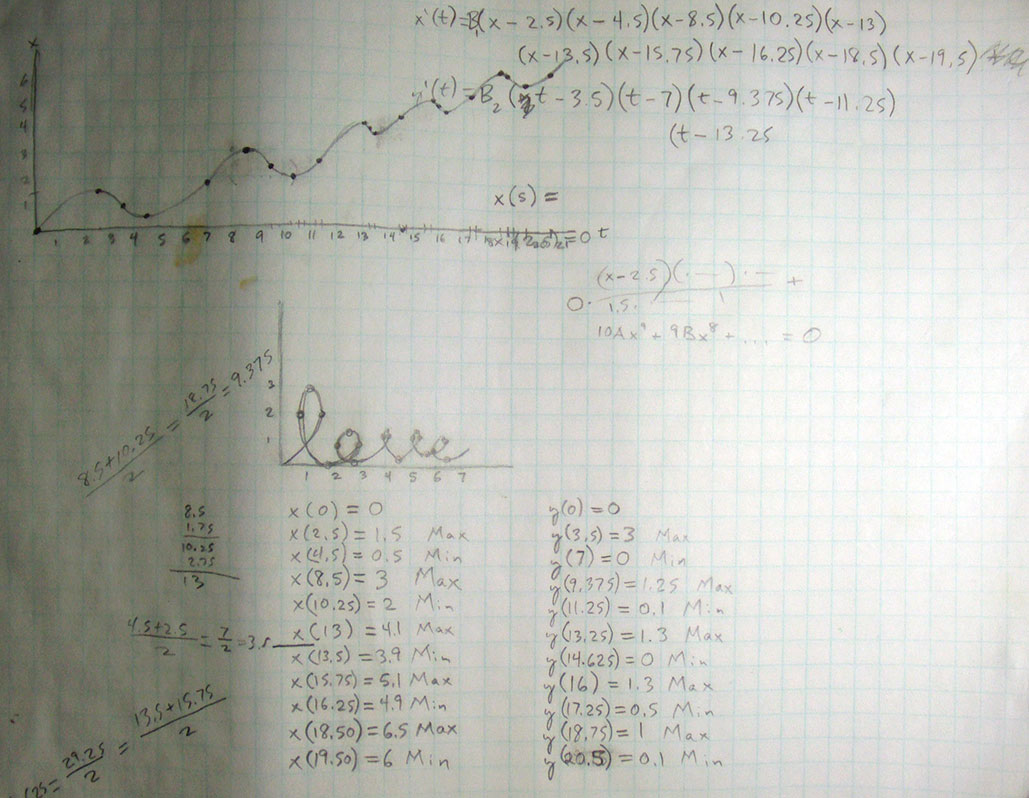 x'(t)=B₁(x-2.5)(x-4.5)(x-8.5)(x-10.25)(x-13)
(x-13.5)(x-15.75)(x-16.25)(x-18.5)(x-19.5)
y'(t)=B₂(t-3.5)(t-7)(t-9.375)(t-11.25)
(t-13.25
x
6
5
4
3
2
1
1 2 3 4 5 6 7 8 9 10 11 12 13 14 15 16 17
=0 t
x(s)=
0· (x-2.5)(·—)·— +
1.5·
10Ax⁹+9Bx⁸+....=0
8.5+10.25/2 = 18.75/2 = 9.375
3
2
1
love
1 2 3 4 5 6 7
8.5
1.75
10.25
2.75
13
4.5+2.5/2 = 7/2 = 3.5
13.5+15.75/2 = 29.25/2 =
x(0)=0
x(2.5)=1.5 Max
x(4.5)=0.5 Min
x(8.5)=3 Max
x(10.25)=2 Min
x(13)=4.1 Max
x(13.5)=3.9 Min
x(15.75)=5.1 Max
x(16.25)=4.9 Min
x(18.50)=6.5 Max
x(19.50)=6 Min
y(0)=0
y(3.5)=3 Max
y(7)=0 Min
y(9.375)=1.25 Max
y(11.25)=0.1 Min
y(13.25)=1.3 Max
y(14.625)=0 Min
y(16)=1.3 Max
y(17.25)=0.5 Min
y(18.75)=1 Max
y(20.5)=0.1 Min